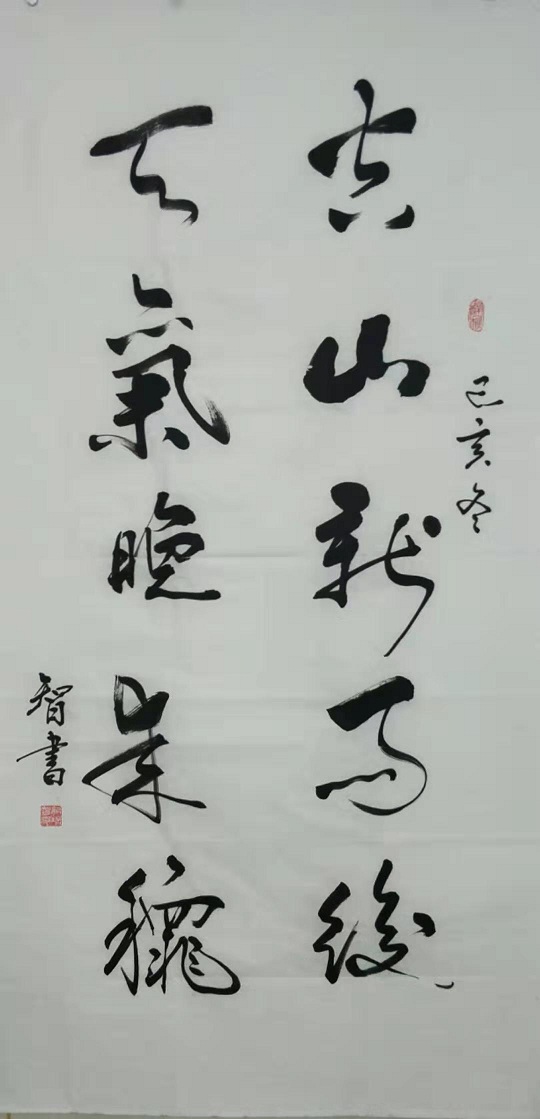 己亥冬
空山新雨後
天氣晚来龝
智書